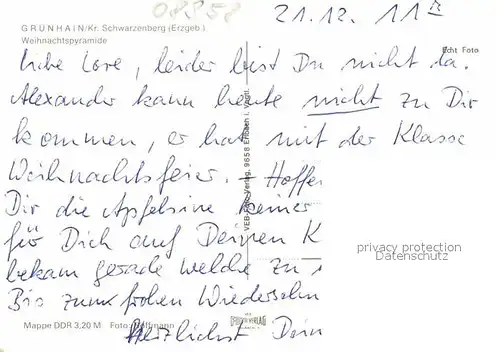 08858
21.12. 11
GRÜNHAIN/Kr. Schwarzenberg (Erzgeb.)
Weihnachtspyramide
Echt Foto
Liebe Lore, leider bist Du nicht da.
Alexander kann heute nicht zu Dir
kommen, er hat mit der Klasse
Weihnachtsfeier. – Hoffe
Dir die Apfelsine
für Dich auf Deinen K
bekam gerade welche zu
Bis zum frohen Wiedersehn
Herzlichst Dein
VEB Foto-Verlag, 9658 Erlbach i. Vogtl.
privacy protection
Datenschutz
Mappe DDR 3,20 M Foto: Hoffmann